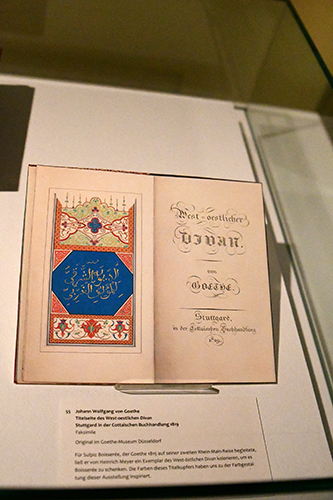 الديوان الشرقي
للمؤلف الغربي
West-oestlicher
DIVAN.
von
GOETHE.
Stuttgard,
in der Cottaischen Buchhandlung
1819.
55 Johann Wolfgang von Goethe
Titelseite des West-oestlichen Divan
Stuttgard in der Cottaischen Buchhandlung 1819
Faksimile
Original im Goethe-Museum Düsseldorf
Für Sulpiz Boisserée, der Goethe 1815 auf seiner zweiten Rhein-Main-Reise begleitete,
ließ er von Heinrich Meyer ein Exemplar des West-östlichen Divan kolorieren, um es
Boisserée zu schenken. Die Farben dieses Titelkupfers haben uns zu der Farbgestal-
tung dieser Ausstellung inspiriert.